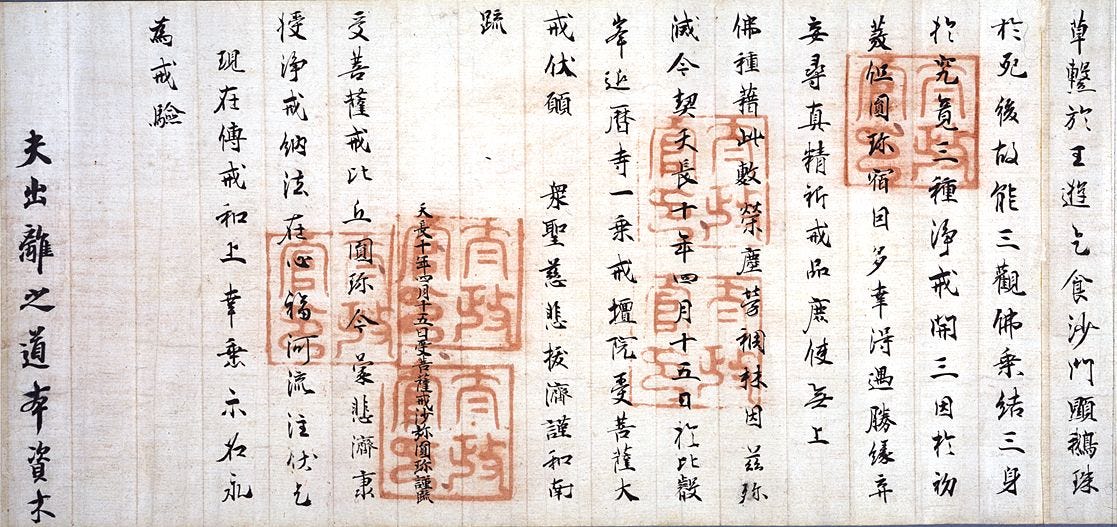 草繫於王遊乞食沙門顯鵝珠
於死後故能三觀佛乗結三身
於究竟三種淨戒開三因於初
發但圓珎宿因多幸得遇勝縁弃
妄尋真精祈戒品庶使無上
佛種藉此敷榮塵勞稠林因茲殄
滅今契天長十年四月十五日於比叡
峯延暦寺一乗戒壇院受菩薩大
戒伏願 衆聖慈悲拔濟謹和南
疏
天長十年四月十五日受菩薩戒沙弥圓珎謹疏
受菩薩戒比丘圓珎今蒙悲濟稟
授淨戒納法在心福河流注伏乞
現在傳戒和上幸垂示名永
為戒驗
夫出離之道本資木
太政官印
太政官印
太政官印
太政官印
太政官印
太政官印